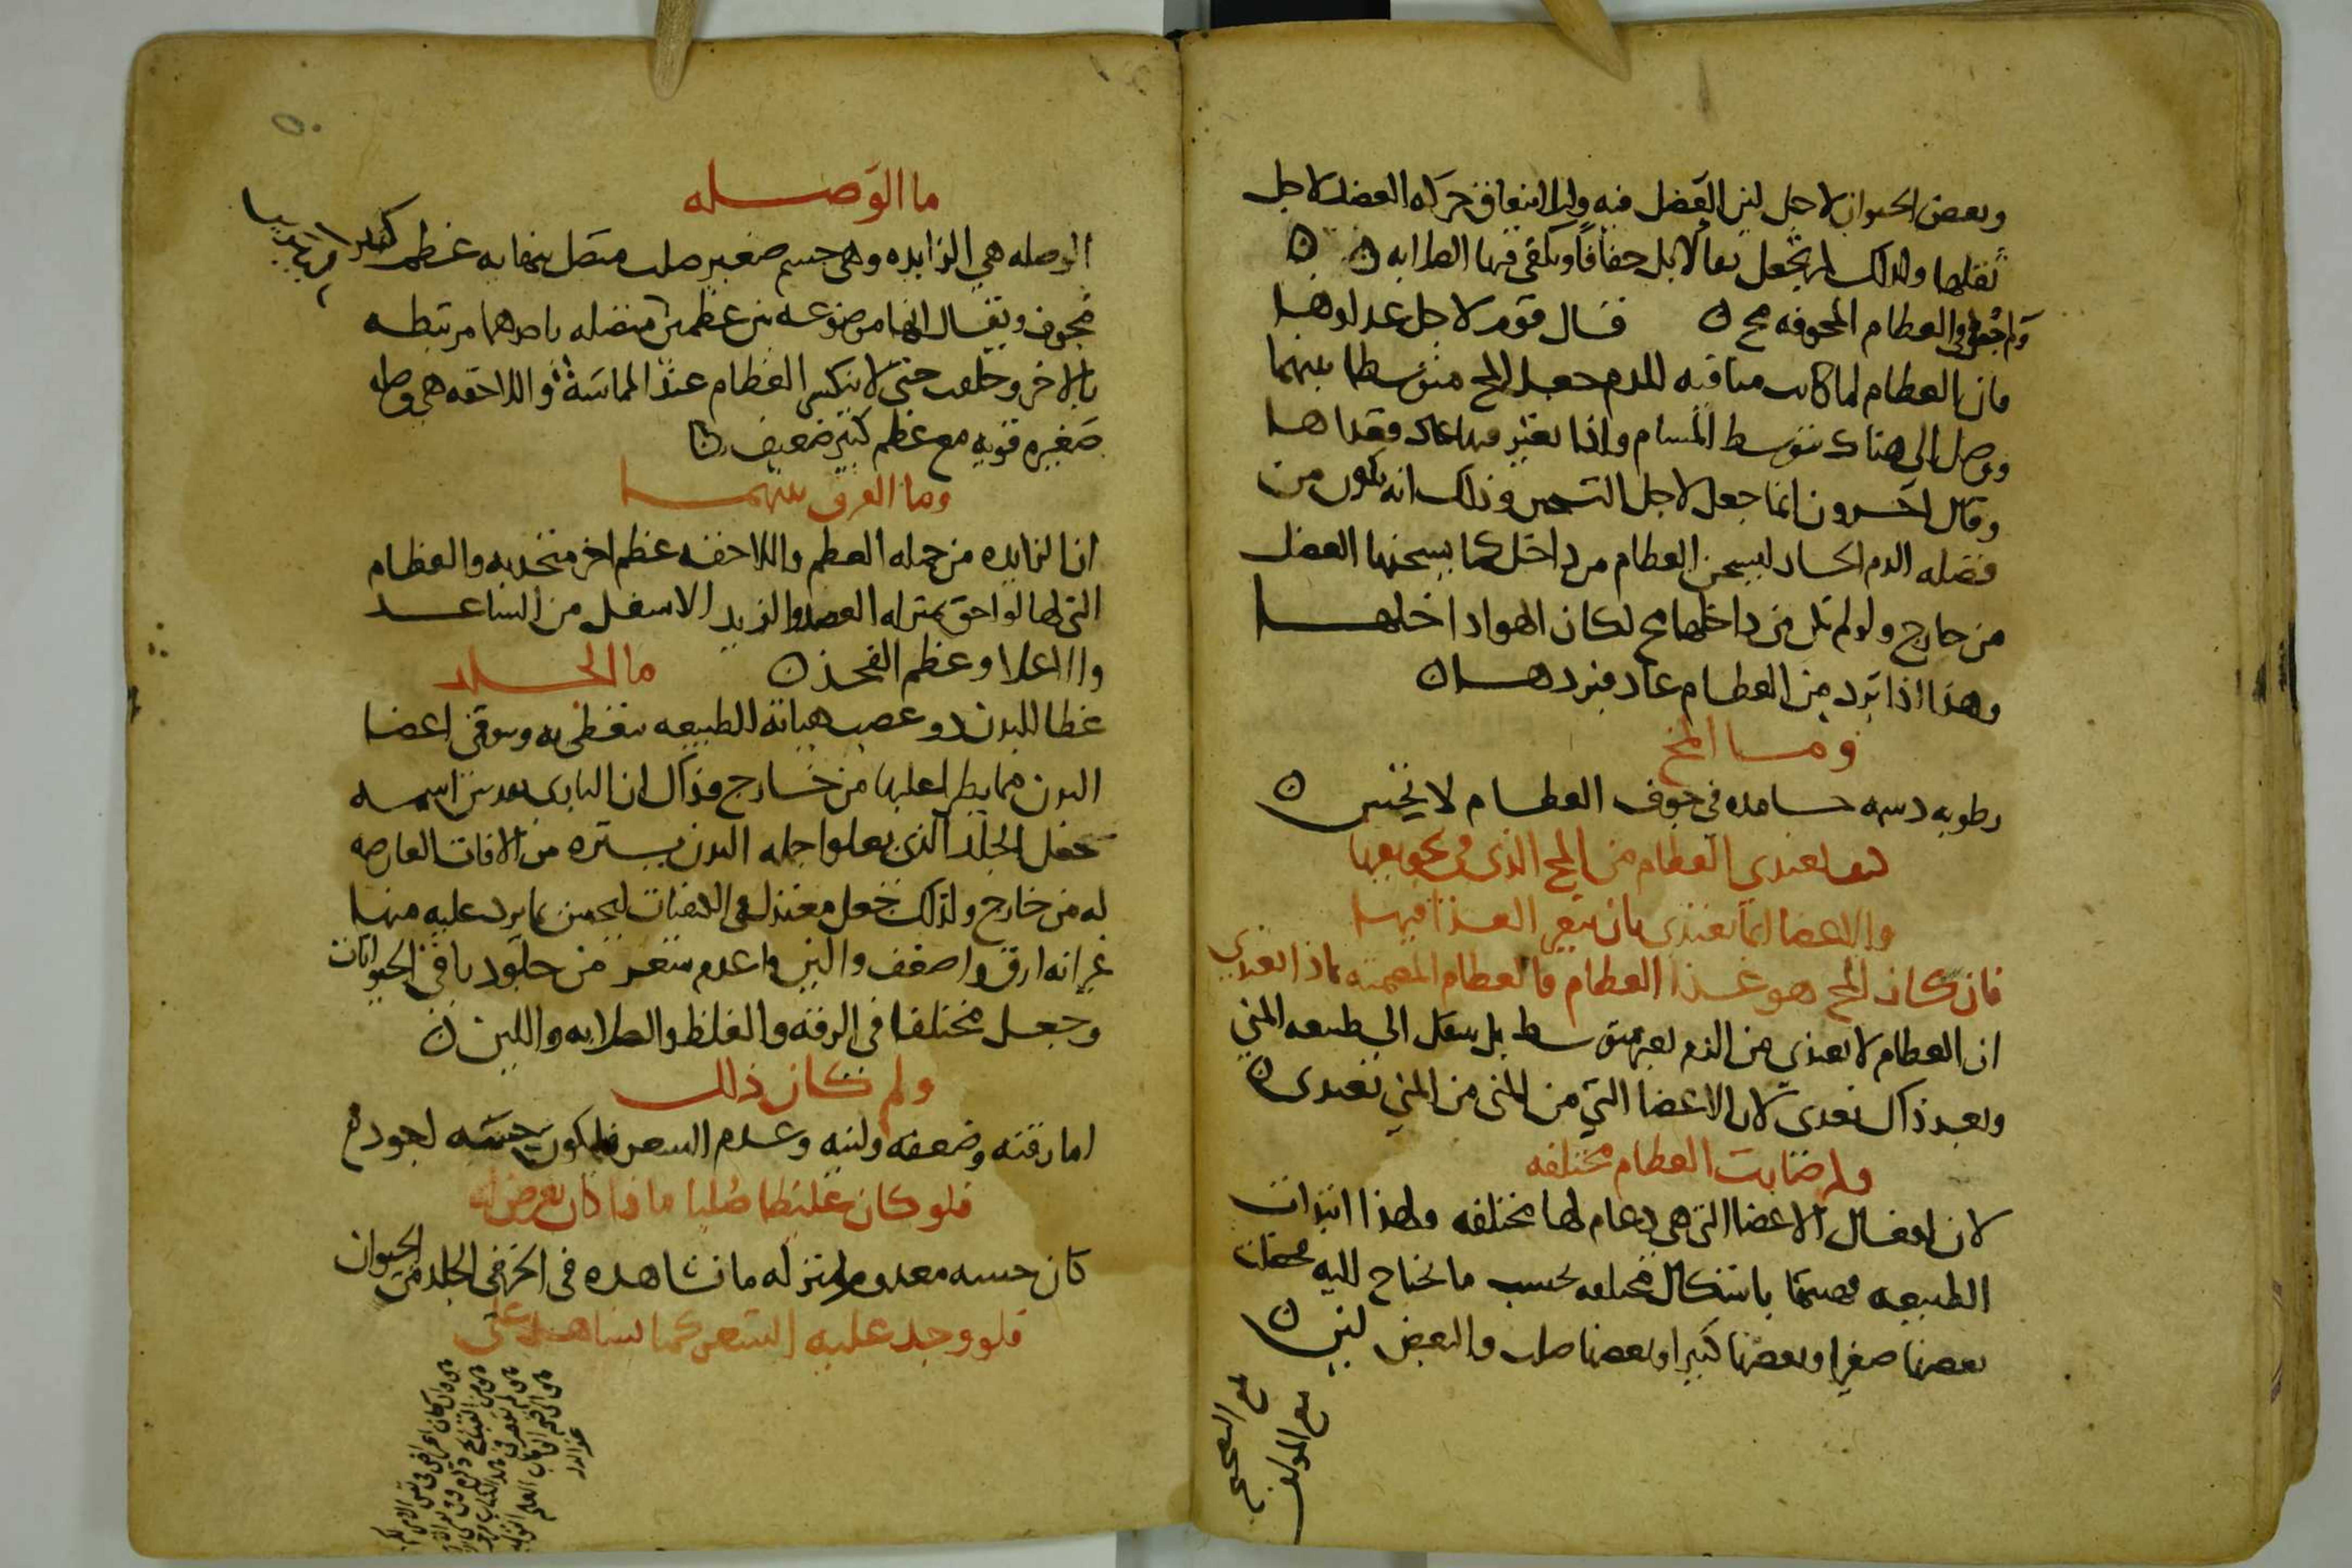 وبعض الحيوان لاجل لين العضل فيه ولىلا انىعاقىى حركه العضل لاجل
ثقلها ولذلك لم تجعل نعالا بل خفافا ويكفى فيها الصلابه
ولم جعل فى العظام المجوفه مخ فقال قوم لاجل غداوها
فان العظام لما كانت منافيه للدم جعل المخ متوسطا بينهما
ويوصل الى هناك بتوسط المسام واذا تغير فيها عاد
وقال اخرون انما جعل لاجل التسخين وذلك انه يكون من
فضله الدم الحار ليسخن العظام من داخل كما يسخنها العضل
من خارج ولو لم يكن من داخلها مخ لكان الهوا داخلها
وهذا اذا برد من العظام عاد فبردها
وما المخ
رطوبه دسمه جامده فى جوف العظام لا تحتبس
كيف تغتدي العظام من المخ الذى فى تجويفها
والاعضا انما تغتذى بان يتغير الغذا فيها
فان كان المخ هو غذا العظام فالعظام المصمته بماذا تغتدي
ان العظام لا تغتذى من الدم بغير متوسط بل ينتقل الى طبيعه المني
وبعد ذاك تغتدى لان الاعضا التي من المنى من المني تغتدى
ولم صارت العظام مختلفه
لان افعال الاعضا التى هى دعام لها مختلفه ولهذا ابتدات
الطبيعه فصيرتها باشكال مختلفه بحسب ما تحتاج اليه فجعلت
بعضها صغيرا وبعضها كبيرا وبعضها صلب والبعض لين
بلغ التصحيح
مع المولف
ما الوصله
الوصله هي الزايده وهى جسم صغير صلب متصل بنهايه عظم كبير
مجوف ويقال انها موضوعه بين عظمين متصله باحدهما مرتبطه
بالاخر وخلقت حتى لا ينكسر العظام عند المماسة واللاحقه هي وصله
صغيره قويه مع عظم كبير ضعيف
وما الفرق بينهما
ان الزايده من جمله العظم واللاحقه عظم اخر متحد به والعظام
التى لها لواحق بمنزله العضد والزند الاسفل من الساعد
والاعلا وعظم الفخذ ما الجلد
غطا للبدن ذو عصب هياته الطبيعه ليغطى به ويوقى اعضا
البدن مما يطرا عليها من خارج وذاك ان البارى تقدس اسمه
جعل الجلد الذى يعلوا جمله البدن يستره من الافات العارضه
له من خارج ولذلك جعل معتدل فى الكيفيات ليحس بما يرد عليه منها
غير انه ارق واضعف والين واعدم شعر من جلود باقى الحيوانات
وجعل مختلفا فى الرقه والغلظ والصلابه واللين
ولم كان ذلك
اما رقته وضعفه ولينه وعدم الشعر فليكون حسه لجودة
فلو كان غليظا صلبا ماذا كان يعرض له
كان حسه معدوم بمنزله ما نشاهده فى الجلد من الحيوان
فلو وجد عليه الشعر كما نشاهد على